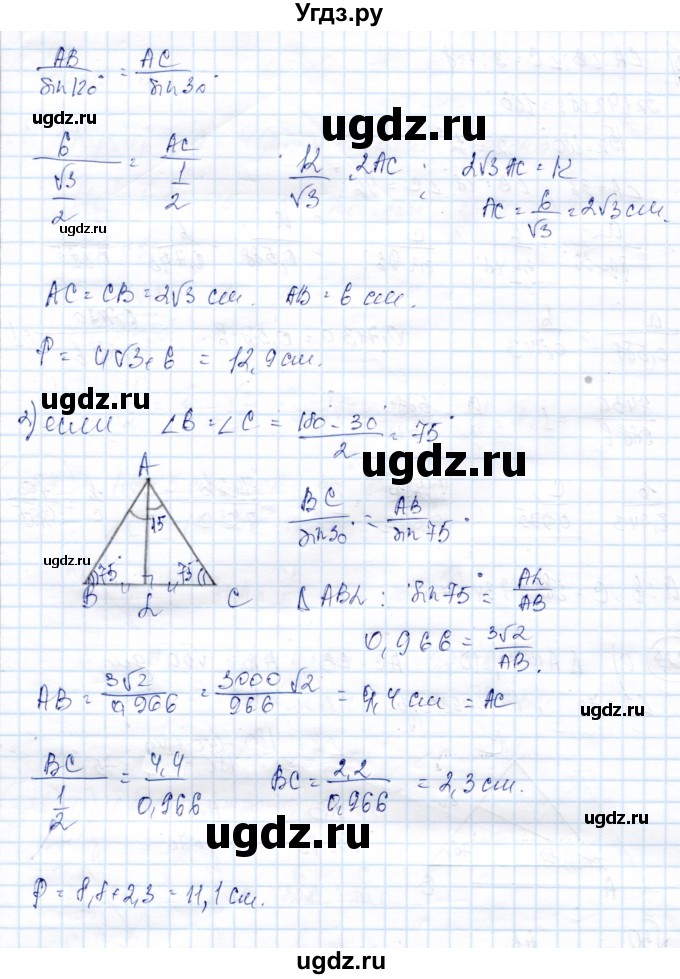 Угдз.ру
AB/sin120° = AC/sin30°
ugdz.ru
6/(√3/2) = AC/(1/2) 12/√3 = 2AC; 2√3 AC = 12
AC = 6/√3 = 2√3 см.
ugdz.ru
ugdz.ru
AC = CB = 2√3 см. AB = 6 см.
P = 4√3+6 = 12,9 см.
ugdz.ru
2) если ∠B = ∠C = (180° - 30°)/2 = 75°
ugdz.ru
A
15
75° 75°
B L C
BC/sin30° = AB/sin75°
ugdz.ru
ugdz.ru
△ABL: sin75° = AL/AB
0,966 = 3√2/AB.
AB = 3√2/0,966 = 3000√2/966 = 4,4 см = AC
ugdz.ru
ugdz.ru
BC/(1/2) = 4,4/0,966 BC = 2,2/0,966 = 2,3 см.
ugdz.ru
ugdz.ru
P = 8,8+2,3 = 11,1 см.
ugdz.ru
ugdz.ru